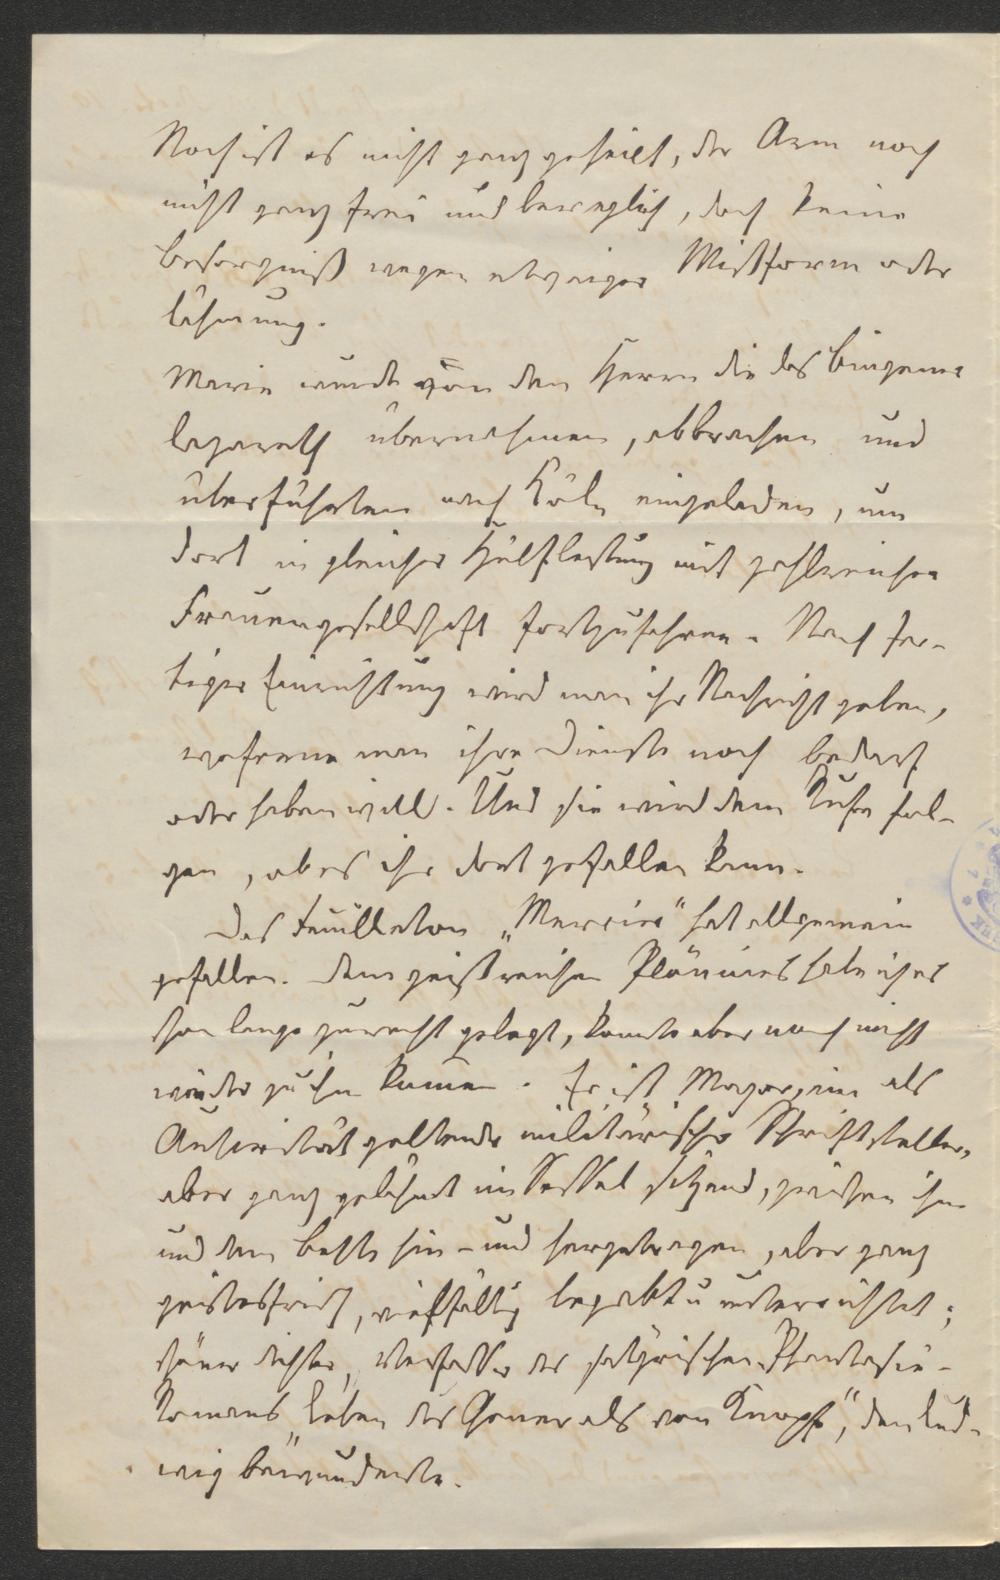 Noch ist es nicht ganz geheilt, der Arm noch
nicht ganz frei und beweglich, doch keine
Besorgniß wegen etwaiger Mißform oder
Lähmung.
Marie wurde von den Herrn die das Bingener
Lazareth übernahmen, abbrachen und
überführten nach Köln eingeladen, um
dort in gleicher Hülfleistung mit zahlreicher
Frauengesellschaft fortzufahren. Nach fer-
tiger Einrichtung wird man ihr Nachricht geben,
wofern man ihre Dienste noch bedarf
oder haben will. Und sie wird dem Rufe fol-
gen, ob es ihr dort gefallen kann.
Das Feuilleton „Mercier" hat allgemein
gefallen. Dem geistreichen Plönnies habe ich es
schon lange zurecht gelegt, konnte aber noch nicht
wieder zu ihm kommen. Er ist Major, ein als
Autorität geltender militärischer Schriftsteller,
aber ganz gelähmt im Sessel sitzend, zwischen ihm
und dem Bette hin- und hergetragen, aber ganz
geistesfrisch, vielfältig begabt u unterrichtet;
schöner Dichter, Verfasser des satyrischen Phantasie-
Romans „Leben des Generals von Knopf", den Lud-
wig bewunderte.